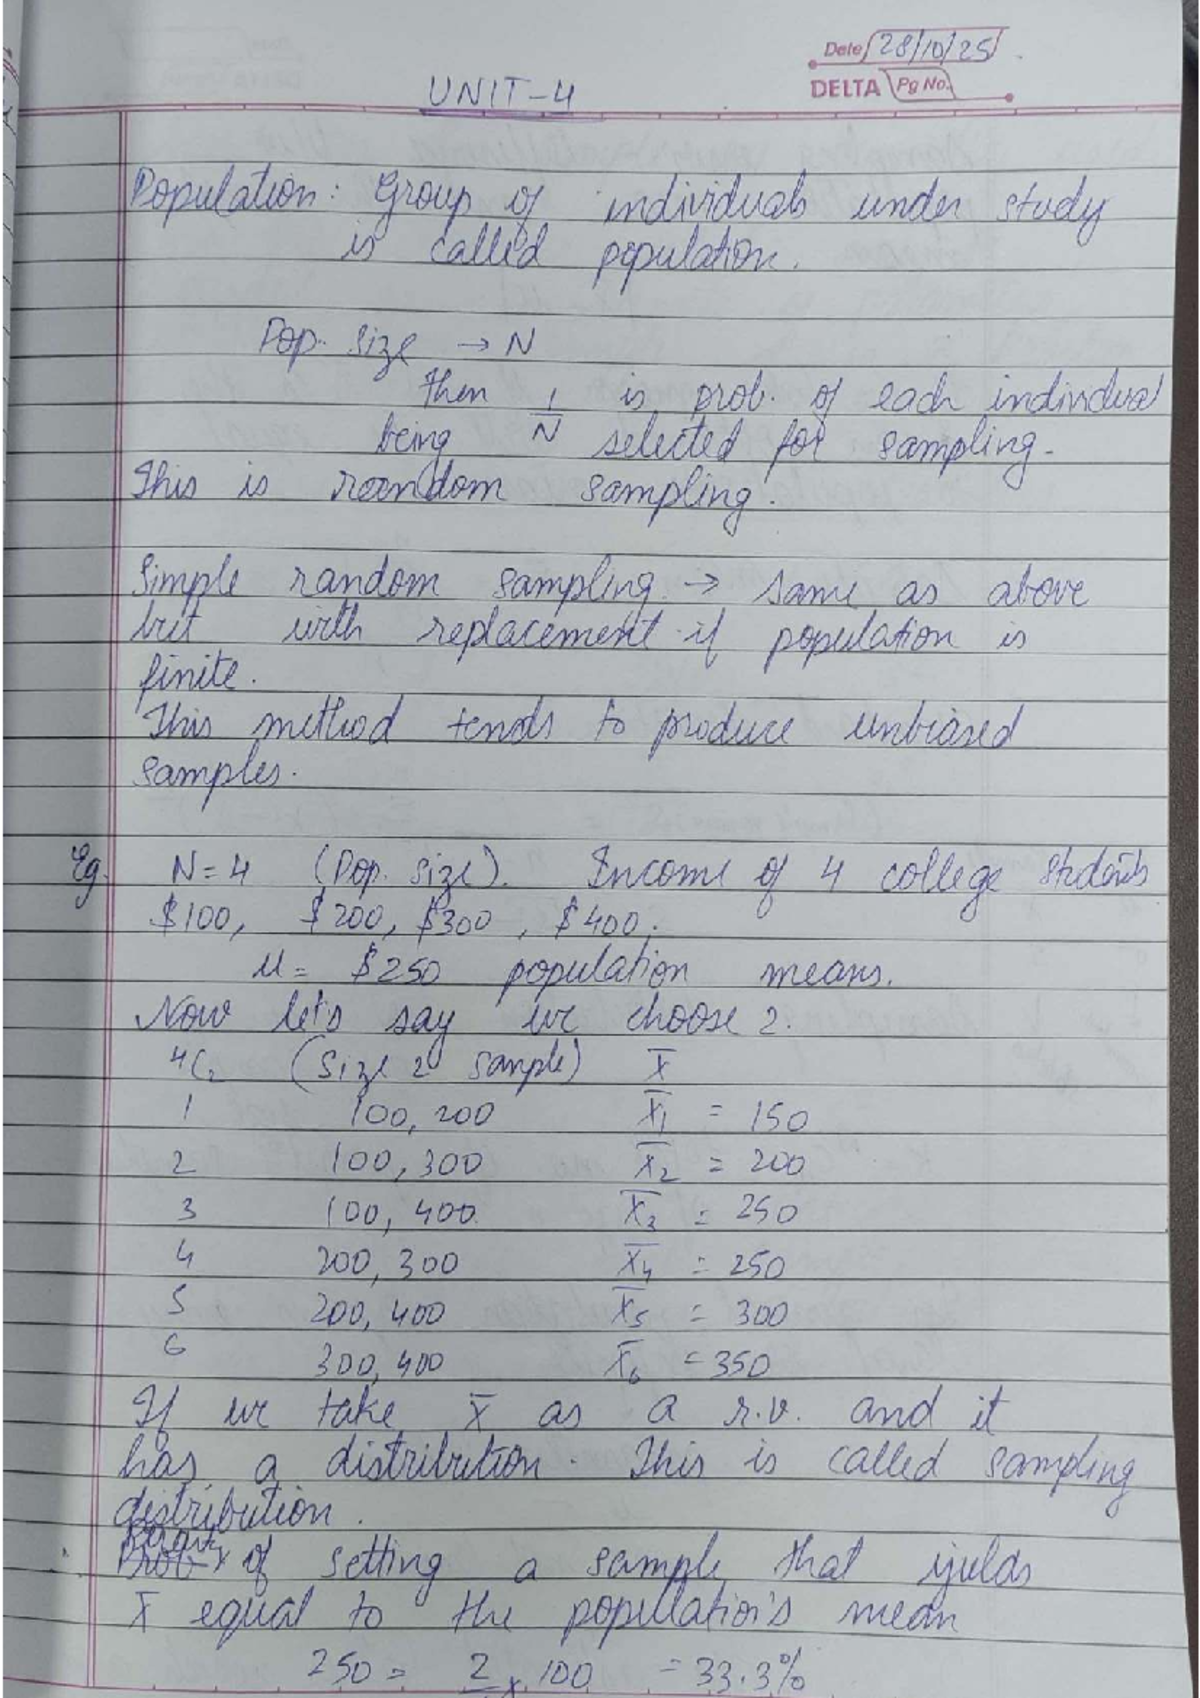 Date 28/10/25
DELTA Pg No.
UNIT-4
Population: Group of individuals under study
is called population.
Pop. size → N
then 1/N is prob. of each individual
being selected for sampling.
This is random sampling.
Simple random sampling → same as above
but with replacement if population is
finite.
This method tends to produce unbiased
samples.
Eg. N=4 (Pop. size). Income of 4 college students
$100, $200, $300, $400.
μ = $250 population means.
Now let's say we choose 2.
⁴C₂ (Size 2 sample) x̄
1 100, 200 x̄₁ = 150
2 100, 300 x̄₂ = 200
3 100, 400 x̄₃ = 250
4 200, 300 x̄₄ = 250
5 200, 400 x̄₅ = 300
6 300, 400 x̄₆ = 350
If we take x̄ as a r.v. and it
has a distribution. This is called sampling
distribution.
Prob of setting a sample that yields
x̄ equal to the population's mean
250 = 2 × 100 = 33.3%